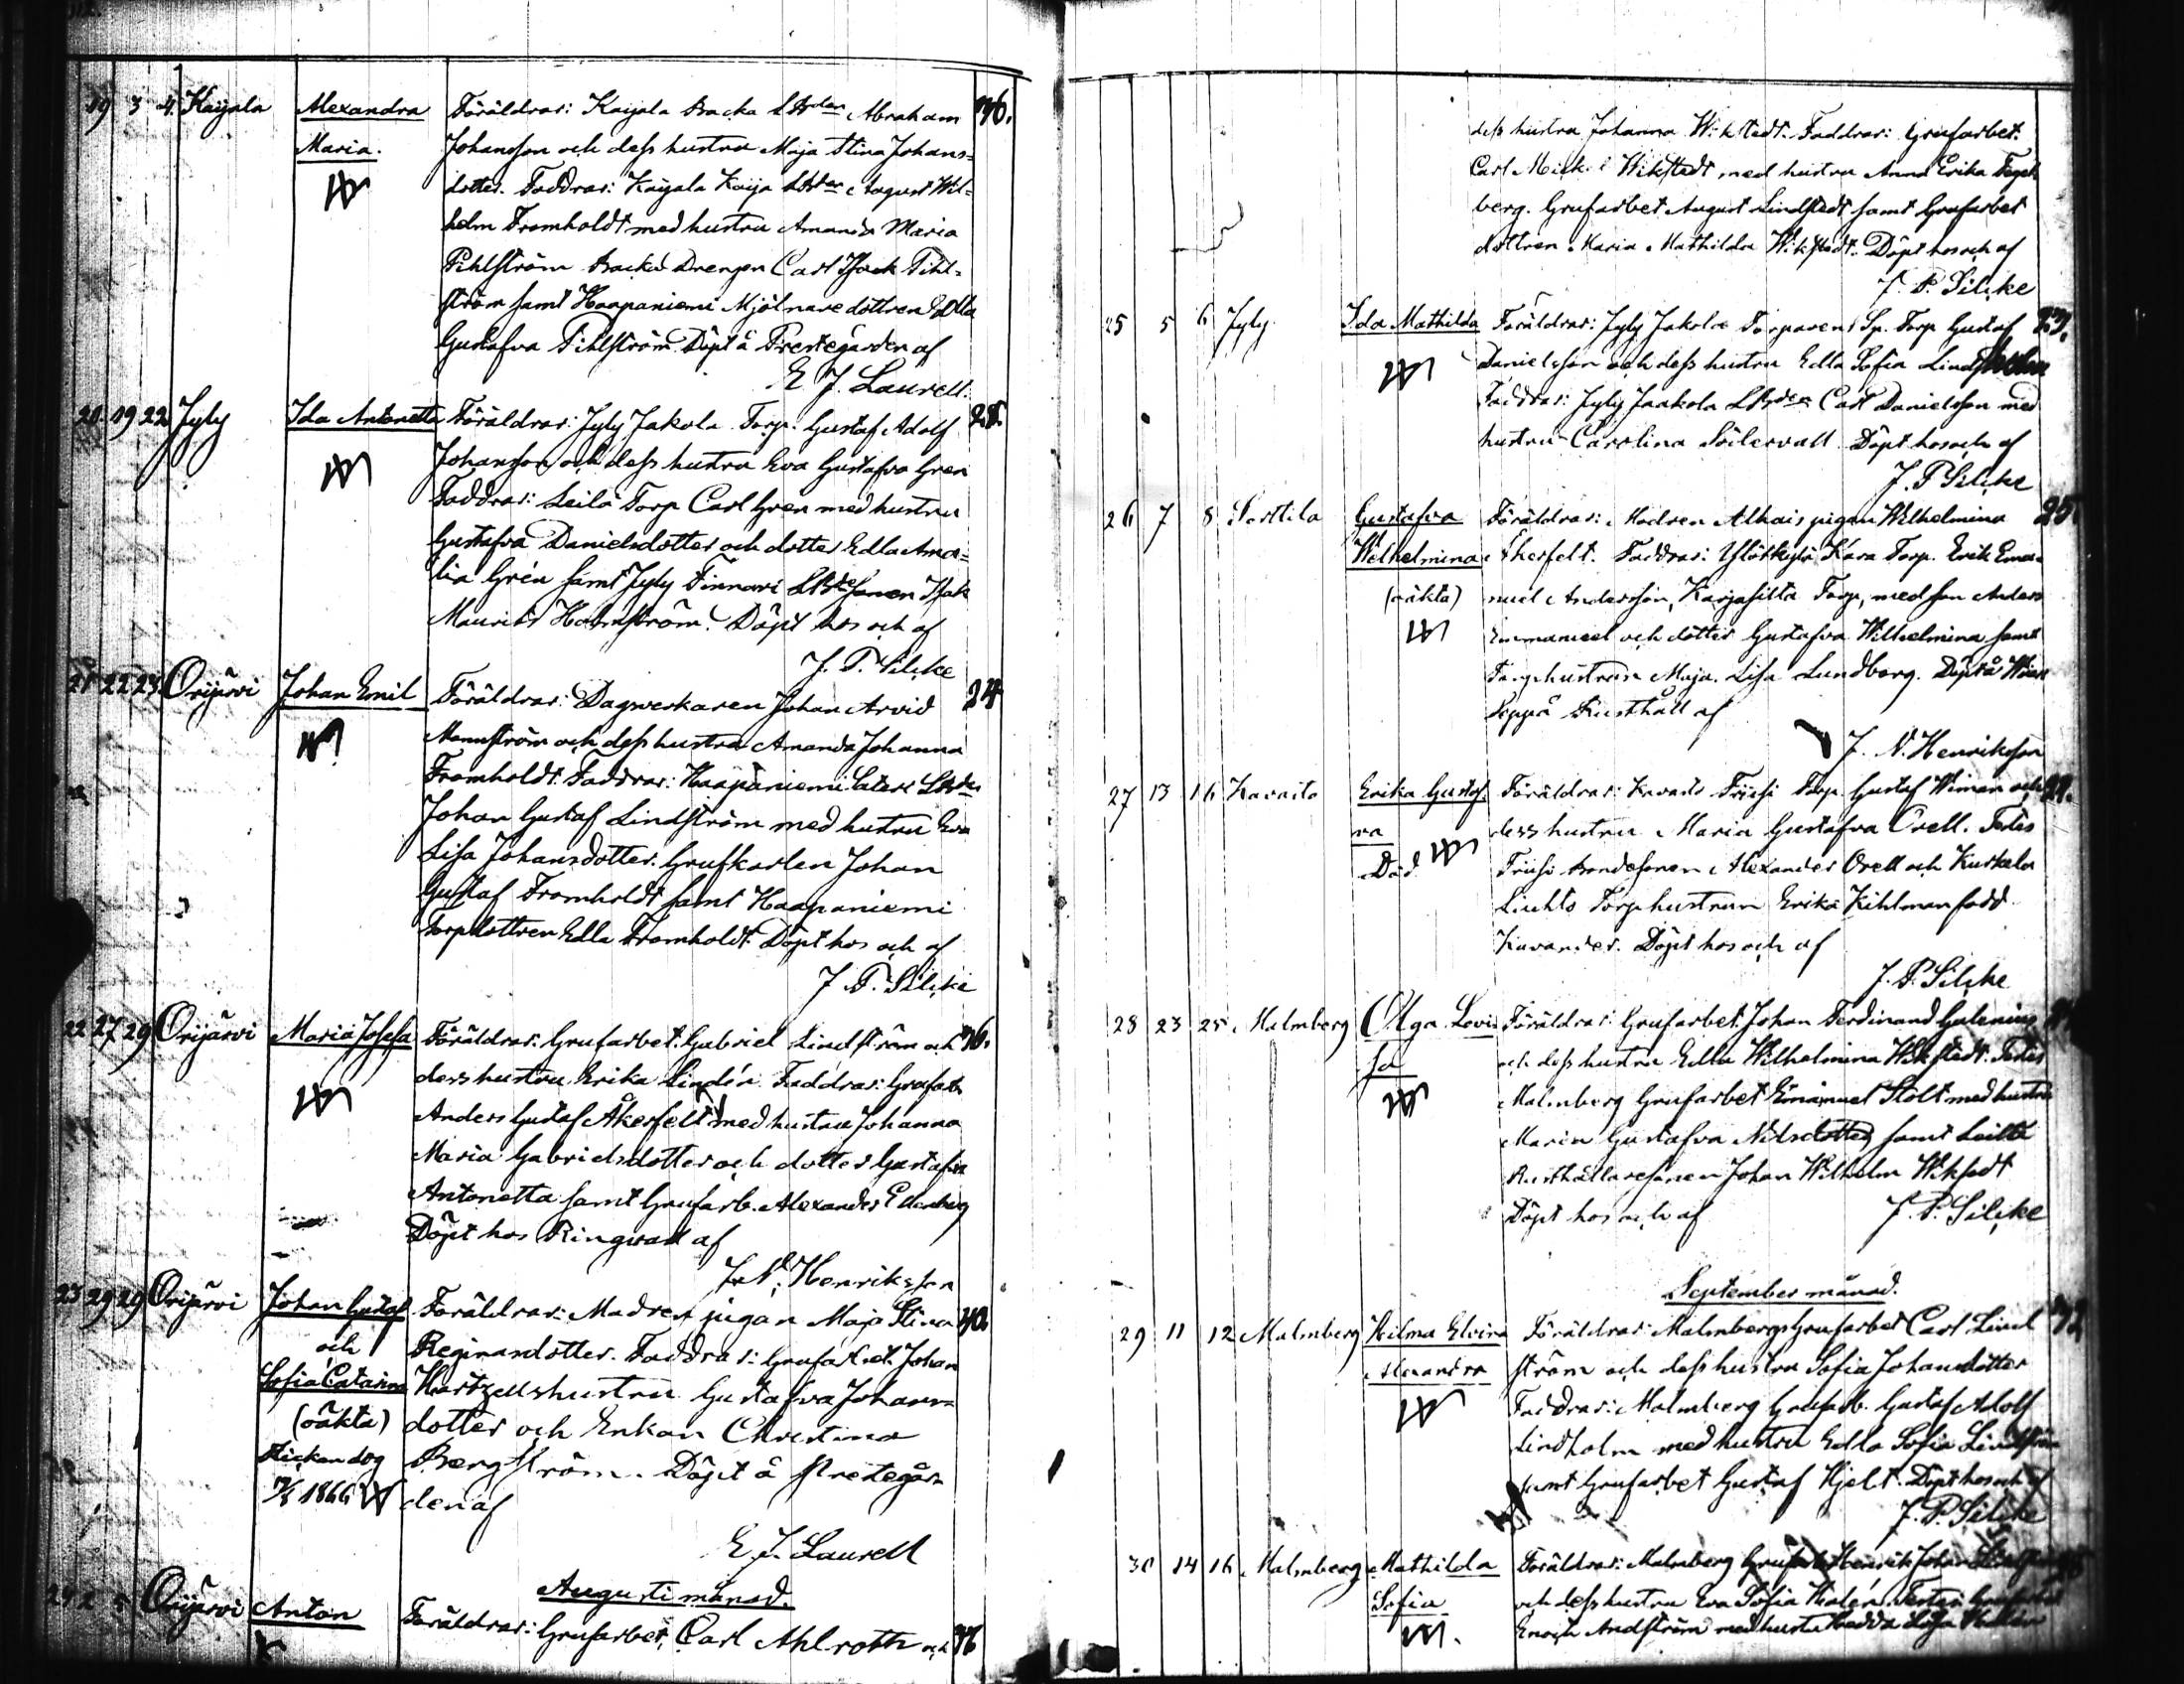 19 3 4. Kaijala Alexandra Föräldrar: Kaijala Backa LBden Abraham 36.
Maria. Johansson och dess hustru Maja Stina Johans=
dotter. Faddrar: Kaijala Kaija LBden August Wil=
helm Fromholdt med hustru Amanda Maria
Pihlström Backa Drengen Carl Isaak Pihl=
ström samt Haapaniemi Mjölnaredottren Edla
Gustafva Pihlström. Döpt å Prestegården af
E J. Laurell.
20. 19 22 Jyly Ida Antonetta Föräldrar: Jyly Jakola Torp. Gustaf Adolf 28.
Johansson och dess hustru Eva Gustafva Gren
Faddrar: Leilä Torp Carl Gren med hustru
Gustafva Danielsdotter och dotter Edla Ama=
lia Grén samt Jyly Finnari LBdesonen Isak
Mauritz Holmström. Döpt hos och af
J. P. Silcke
21 22 23 Orijärvi Johan Emil Föräldrar: Dagsverkaren Johan Arvid 24
Mannström och dess hustru Amanda Johanna
Fromholdt. Faddrar: Haapaniemi LBden
Johan Gustaf Lindström med hustru Eva
Lisa Johansdotter. Grufkarlen Johan
Gustaf Fromholdt samt Haapaniemi
Torpdottren Edla Fromholdt. Döpt hos och af
J. P. Silcke
22 27 29 Orijärvi Maria Josefa Föräldrar: Grufarbet. Gabriel Lindström och 36.
dess hustru Erika Lindén. Faddrar: Grufarb.
Anders Gustaf Åkerfelt med hustru Johanna
Maria Gabrielsdotter och dotter Gustafva
Antonetta samt Grufarb. Alexander
Döpt hos Ringvall af
J. N. Henriksson
23 29 29 Orijärvi Johan Gustaf Föräldrar: Modren pigan Maja Stina 40.
och Reginasdotter. Faddrar: Grufarbet. Johan
Sofia Catarina Hartzells hustru Gustafva Johans=
(oäkta) dotter och Enkan Christina
Flickan dog Bergström. Döpt å Prestegår=
1866 den af
E. J. Laurell
Augusti månad.
24 2 5 Orijärvi Anton Föräldrar: Grufarbet. Carl Ahlroth och 36
dess hustru Johanna Wikstedt. Faddrar: Grufarbet.
Carl Mick. Wikstedt med hustru Anna Erika Fager
berg. Grufarbet August Lindstedt samt Grufarbet
dottren Maria Mathilda Wikstedt. Döpt hos och af
J. P. Silcke
25 5 6 Jyly. Ida Mathilda Föräldrar: Jyly Jakola Torparens Sp. Torp Gustaf 23.
Danielsson och dess hustru Edla Sofia
Faddrar: Jyly Jaakola LBden Carl Danielsson med
hustru Carolina Södervall. Döpt hos och af
J. P. Silcke
26 7 8 Gustafva Föräldrar: Modren Alhais pigan Wilhelmina 25.
Wilhelmina Åkerfelt. Faddrar: Ylötkylä Kara Torp. Erik Ema=
(oäkta) nuel Andersson, Karjasilta Torp, med son Anders
Emmanuel och dotter Gustafva Wilhelmina samt
Torphustrun Maja Lisa Lundberg. Döpt å
Seppä Rusthåll af
J. N. Henriksson
27 13 16 Kavasto Erika Gustaf. Föräldrar: Kavasto Torp Gustaf Wiman och
va dess hustru Maria Gustafva Orell. Testes
Död Bondesonen Alexander Orell och Kurkela
Torphustrun Erika Kihlman född
Kavander. Döpt hos och af
J. P. Silcke
28 23 25 Malmberg Olga Lovi Föräldrar: Grufarbet. Johan Ferdinand Galenius
sa och dess hustru Edla Wilhelmina Wikstedt. Testes
Malmberg Grufarbet Emanuel Stolt med hustru
Maria Gustafva Nilsdotter samt Leilä
Rusthållaresonen Johan Wilhelm Wikstedt
Döpt hos och af J. P. Silcke
September månad.
29 11 12 Malmberg Hilma Elvira Föräldrar: Malmbergs Grufarbet Carl Lind 32
Alexandra ström och dess hustru Sofia Johansdotter
Faddrar: Malmberg Grufarb. Gustaf Adolf
Lindholm med hustru Edla Sofia Lindström
samt Grufarbet Gustaf Hjelt. Döpt hos och af
J. P. Silcke
30 14 16 Malmberg Mathilda Föräldrar: Malmberg Henrik Johan
Sofia och dess hustru Eva Sofia Testes
Enoch Andström med hustru